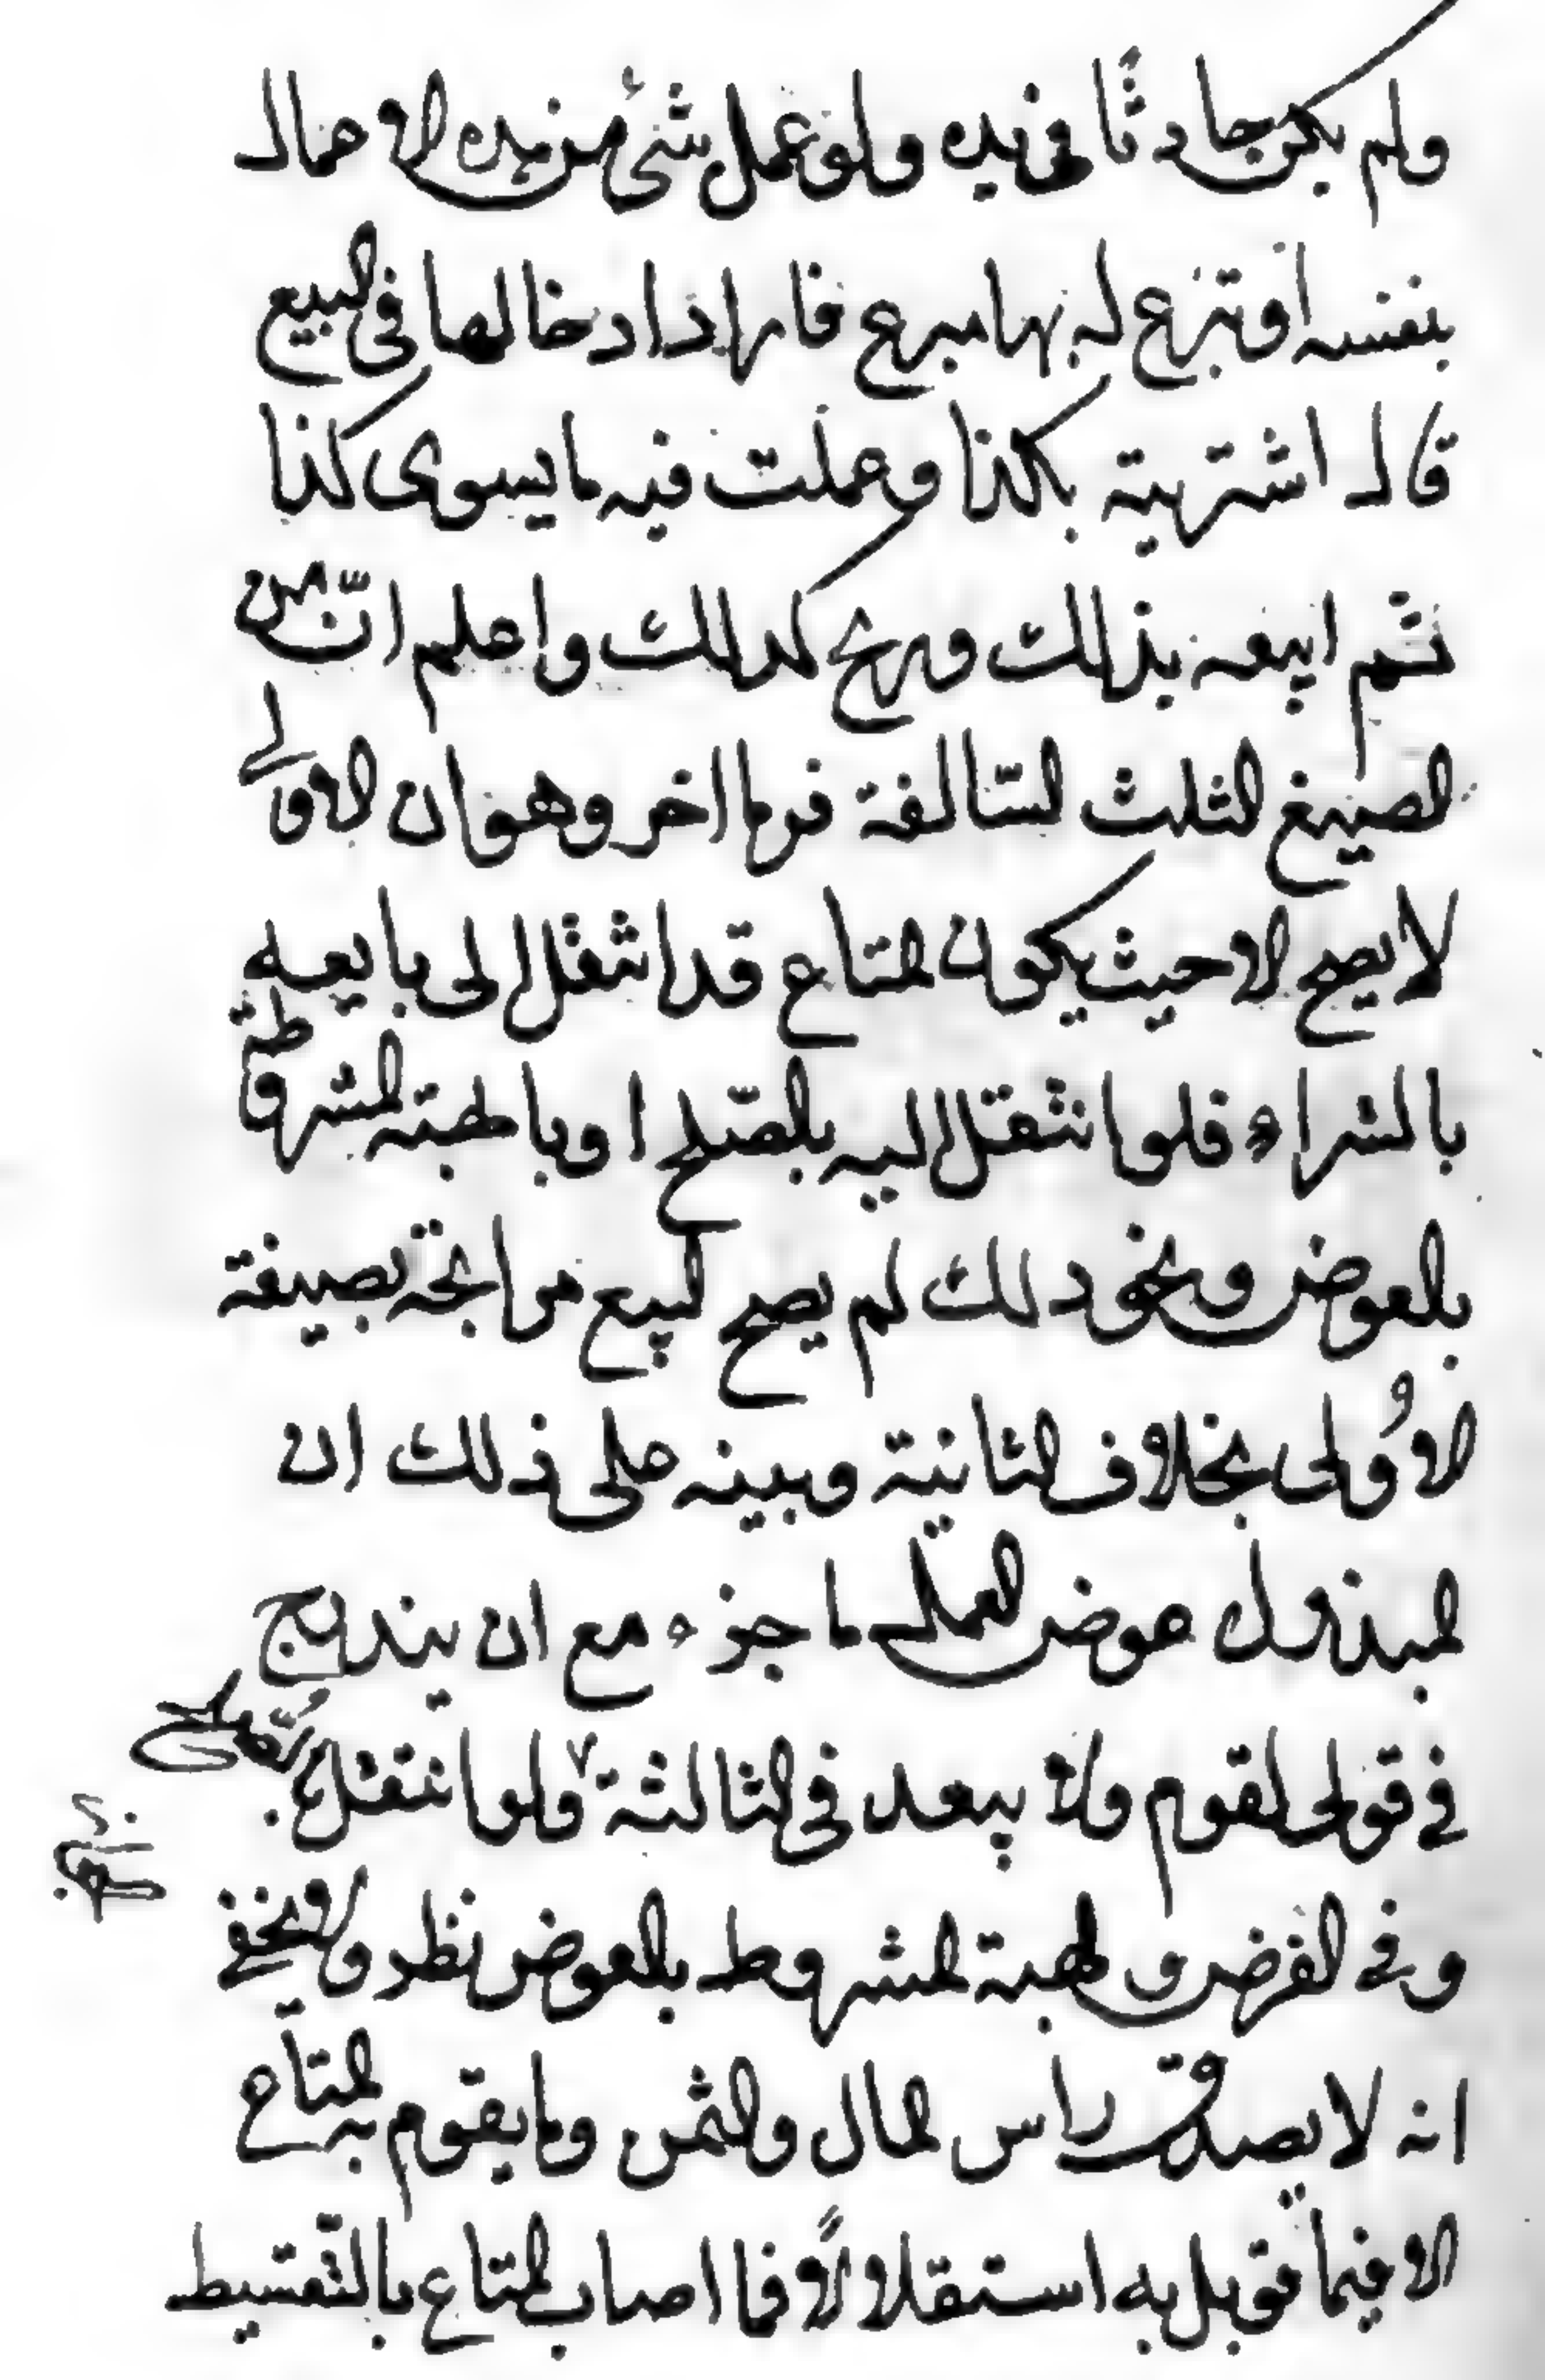 ولم يكن حادثا في يده ولو عمل شئ من هذه الاعمال
بنفسه او تبرع له بها مبرع فاراد ادخالها في البيع
قال اشتريته بكذا وعملت فيه ما يسوى كذا
ثم ابيعه بذلك وربح كذلك واعلم انّ من
الصيغ الثلث السّالفة فرقا اخر وهو ان الاولى
لا يصح الا حيث يكون المتاع قد انتقل الى بايعه
بالشراء فلو انتقل اليه بالصّلح او بالهبته المشروطة
بالعوض ونحو ذلك لم يصح البيع مرابحة بصيغة
الاُولى بخلاف الثانية وبينه على ذلك ان
المبذول عوض العمل ما جزء مع ان يندرج
في قولي لقوم ولا يبعد في الثالثة ولو انتقل بالصلح
وفي القرض والهبة المشروط بالعوض نظر ولا يخفى
انه لا يصدق راس المال والثمن وما يقوم به المتاع
الا فيما قوبل به استقلالاً فما اصاب المتاع بالتّقسيط